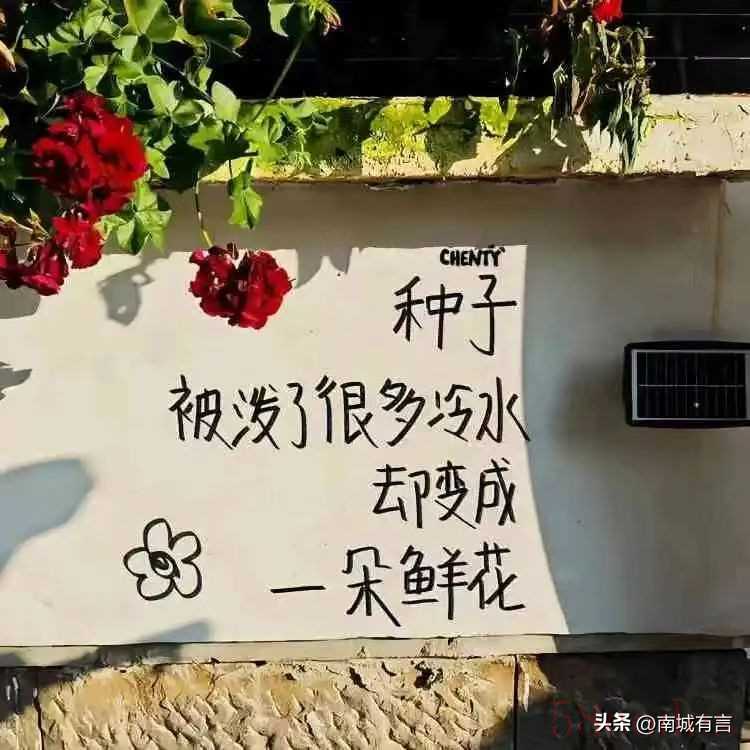 CHENTY
种子
被泼了很多冷水
却变成
一朵鲜花
头条 @南城有言